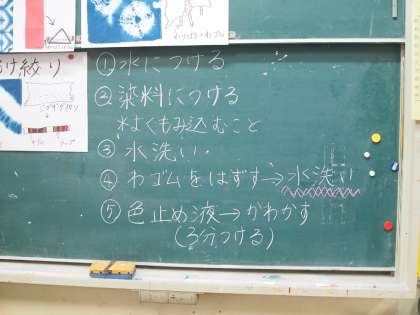 け絞り
①水につける
②染料につける
*よくもみ込むこと
③水洗い.
④わゴムをはずす→水洗い
⑤色止め液→かわかす
(3分つける)